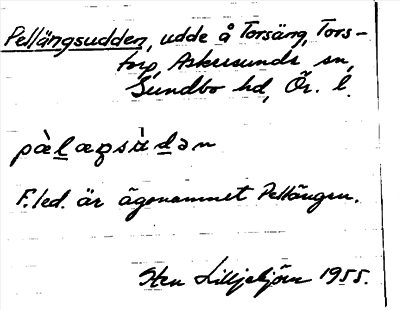 Pellängsudden, udde å Torsäng, Tors-
torp, Askersunds sn,
Sundbo hd, Ör. l.
pæ̀l̲æŋsùd̲ən
F.led. är ägonamnet Pellängen.
Sten Lilljebjörn 1955.